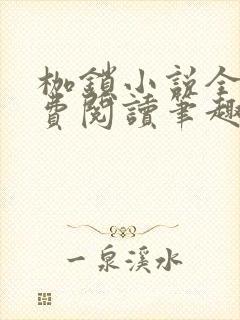 枷鎖小說全
費閱讀筆趣
一泉溪水